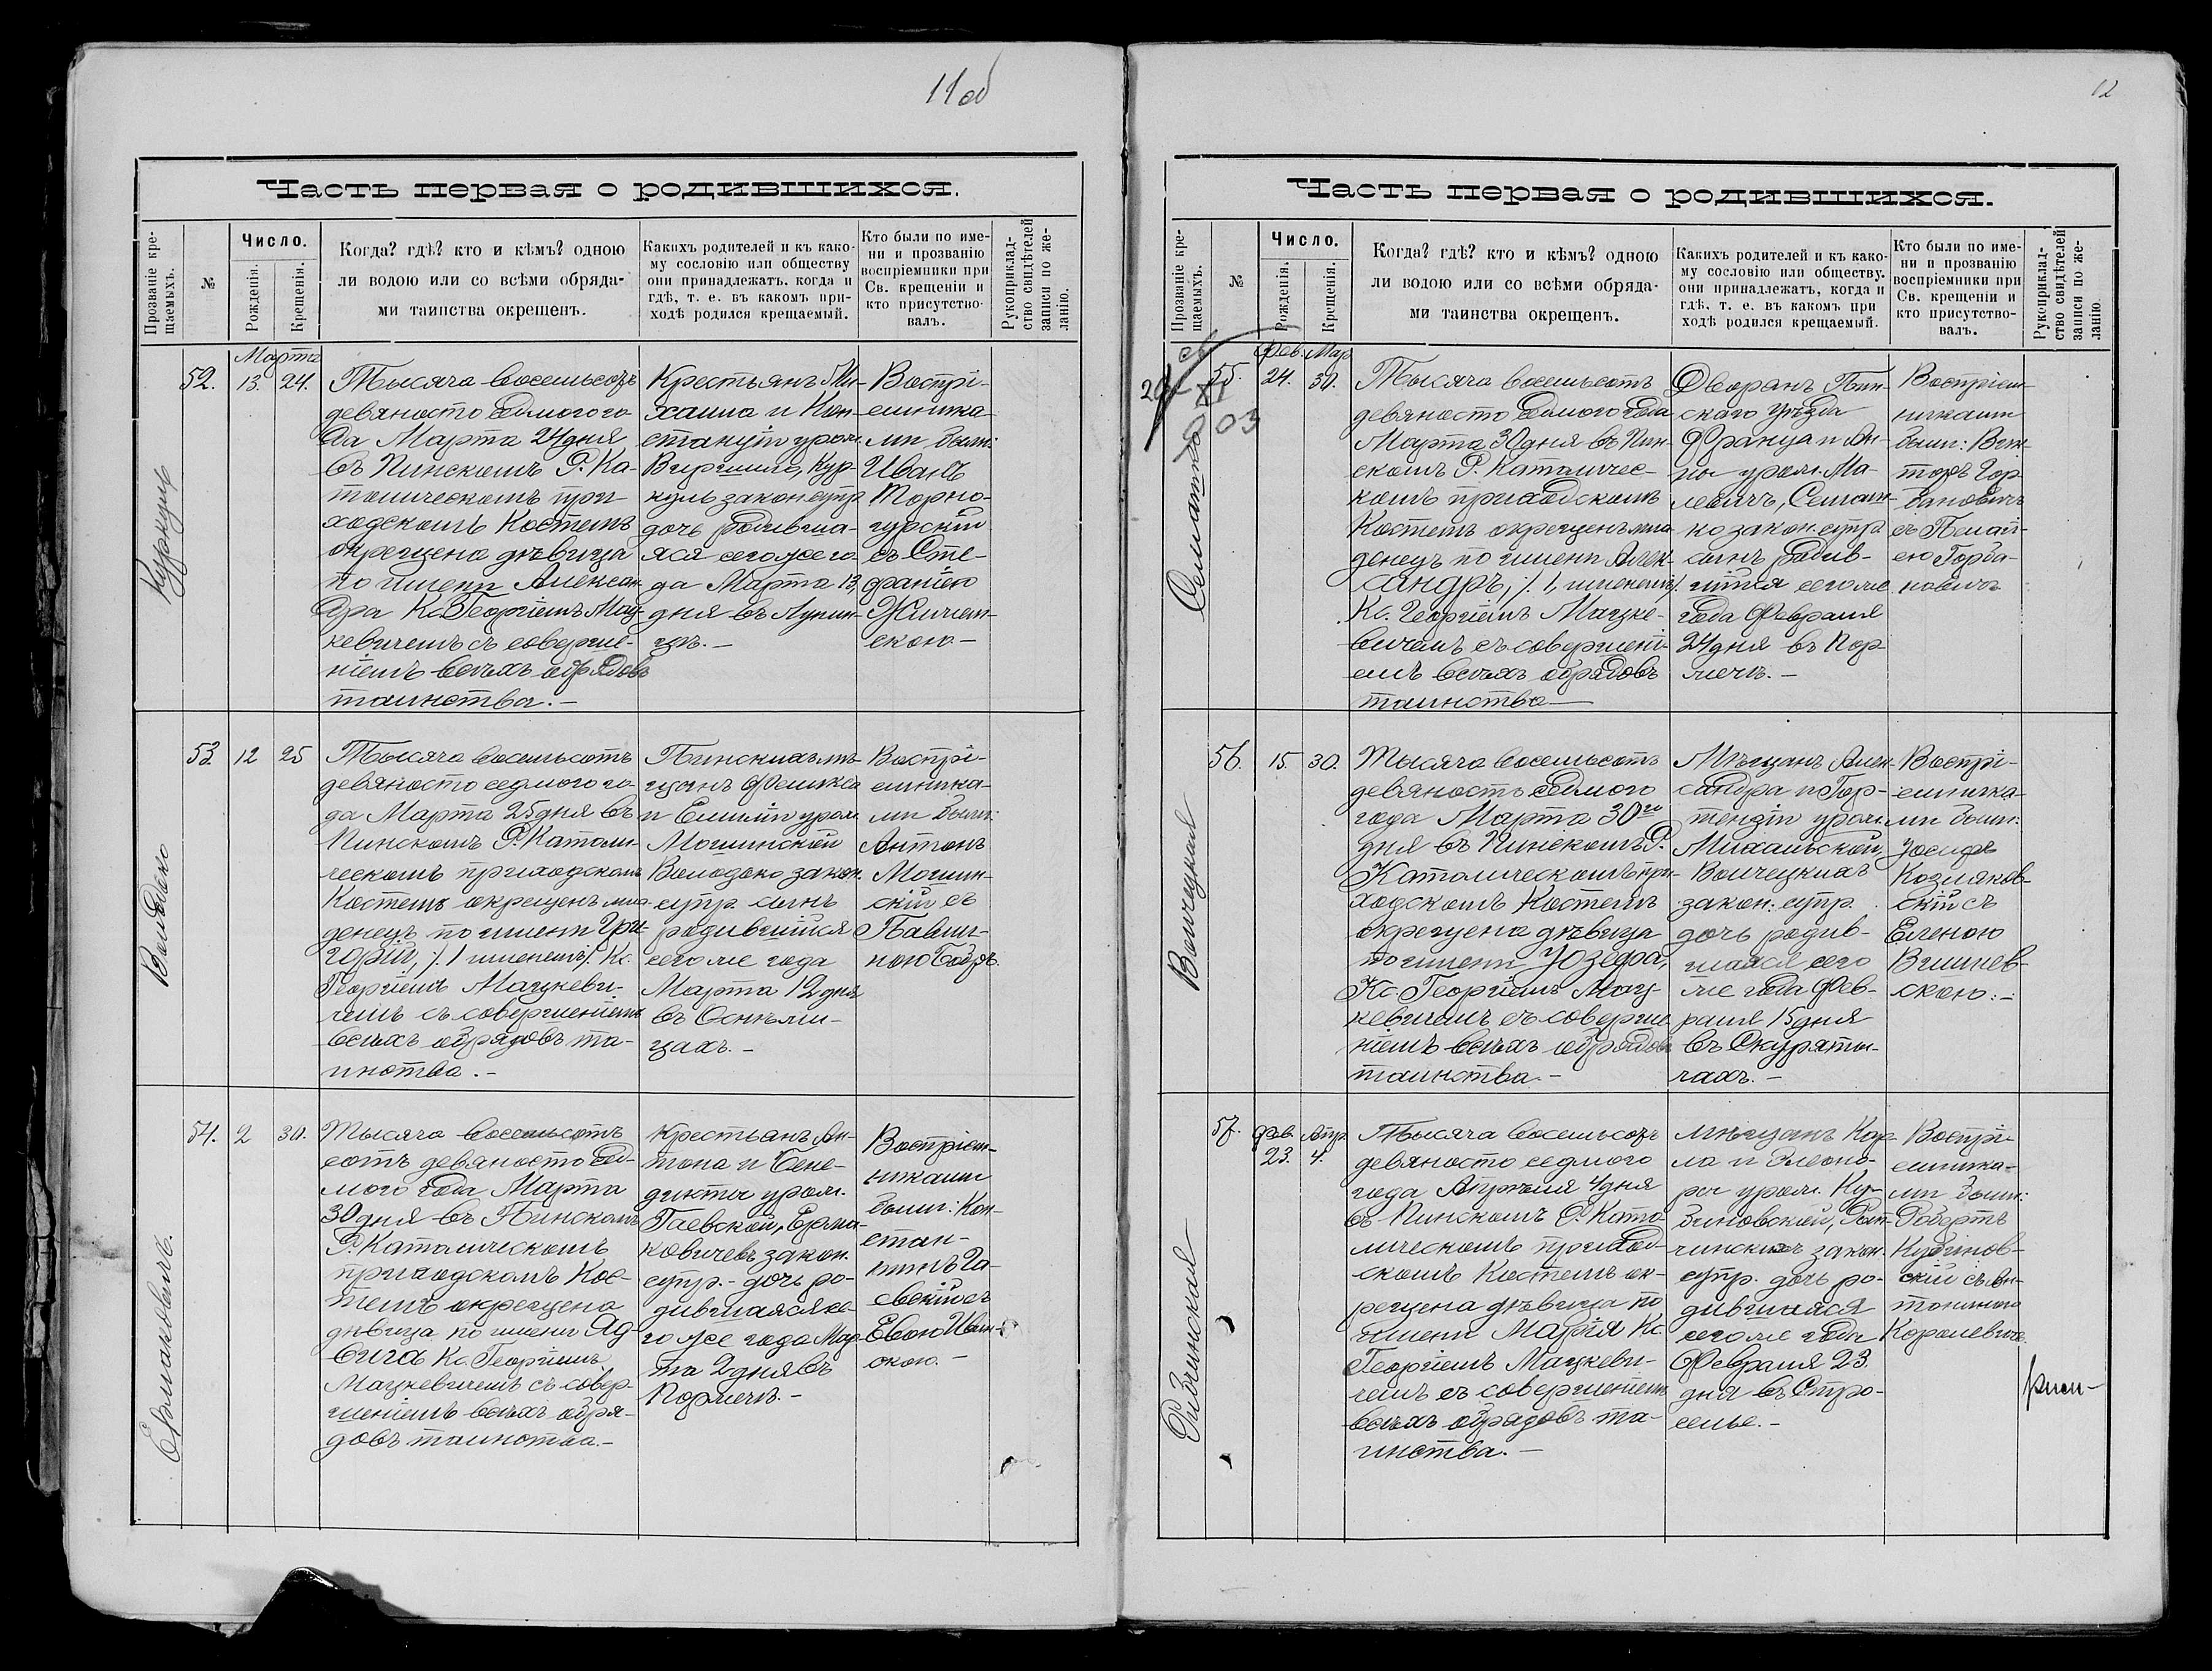 11об
Часть первая о родившихся.
Прозваніе кре-
щаемыхъ.
№
Число.
Рожденія.
Крещенія.
Когда? гдѣ? кто и кѣмъ? одною
ли водою или со всѣми обряда-
ми таинства окрещенъ.
Какихъ родителей и къ како-
му сословію или обществу
они принадлежатъ, когда и
гдѣ, т. е. въ какомъ при-
ходѣ родился крещаемый.
Кто были по име-
ни и прозванію
воспріемники при
Св. крещеніи и
кто присутство-
валъ.
Рукоприклад-
ство свидѣтелей
записи по же-
ланію.
Куркуць
52.
Марта
13. 24.
Тысяча восемьсотъ
девяносто седмого го
да Марта 24 дня
въ Пинскомъ Р. Ка-
толическомъ при
ходскомъ Костелѣ
окрещена дѣвица
по имени Алексан
дра Кс. Георгіемъ Мац-
кевичемъ съ соверше-
ніемъ всѣхъ обрядовъ
таинства.-
Крестьянъ Ми-
хаила и Кон-
станціи урож.
закон. супр
дочь родивша-
яся сего же го
да Марта 13
дня въ Лунин-
цѣ.-
Воспрі-
емника-
ми были:
Иванъ
Торно-
гурскій
съ Сте-
фаніею
скою-
Володько
53.
12
25
Тысяча восемьсотъ
девяносто седмого го-
да Марта 25 дня въ
Пинскомъ Р. Католи-
ческомъ приходскомъ
Костелѣ окрещенъ мла-
денецъ по имени Гри-
горій, /. 1 именемъ/. Кс.
Георгіемъ Мацкеви-
чемъ съ совершеніемъ
всѣхъ обрядовъ та-
инства.-
Пинскихъ мѣ-
щанъ Феликса
и Емиліи урож.
Мошинской
Володько закон.
супр. сынъ
родившійся
сего же года
Марта 12 дня
въ Оснѣжи-
цахъ.-
Воспрі-
емника-
ми были:
Антонъ
Мошин-
скій съ
Павли-
ною Бобръ.
Ермаковичъ.
54.
2
30.
Тысяча восемьсотъ
сотъ девяносто сед-
мого года Марта
30 дня въ Пинскомъ
Р. Католическомъ
приходскомъ Кос-
телѣ окрещена
дѣвица по имени Яд-
вига Кс. Георгіемъ
Мацкевичемъ съ совер-
шеніемъ всѣхъ обря-
довъ таинства.-
Крестьянъ Ан-
тона и Бене-
дикты урож.
Гаевской, Ерма-
ковичевъ закон.
супр.- дочь ро-
дившаяся се-
го же года Мар-
та 2 дня въ
Поречьѣ.-
Воспріем-
никами
были: Кон-
стан-
тинъ Га-
евскій съ
Евою Ивин-
скою.-
12
Часть первая о родившихся.
Прозваніе кре-
щаемыхъ.
№
Число.
Рожденія.
Крещенія.
Когда? гдѣ? кто и кѣмъ? одною
ли водою или со всѣми обряда-
ми таинства окрещенъ.
Какихъ родителей и къ како-
му сословію или обществу.
они принадлежатъ, когда и
гдѣ, т. е. въ какомъ при
ходѣ родился крещаемый.
Кто были по име-
ни и прозванію
воспріемники при
Св. крещеніи и
кто присутство-
валъ.
Рукоприклад-
ство свидѣтелей
записи по же-
ланію.
03
Семашко
55.
Фев. Мар
24. 30.
Тысяча восемьсотъ
девяносто седмого года
Марта 30 дня въ Пин-
скомъ Р. Католичес-
комъ приходскомъ
Костелѣ окрещенъ мла-
денецъ по имени Алек-
сандръ, /. 1, именемъ/.
Кс. Георгіемъ Мацке-
вичемъ съ совершені-
емъ всѣхъ обрядовъ
таинства-
Дворянъ Пин-
скаго уѣзда
Франца и Ан-
ны урож. Ма-
левичъ, Семаш-
ко закон. супр.
сынъ родив-
шійся сего же
года Февраля
24 дня въ Пор-
Воспріем-
никами
были: Вик-
торъ Гор
бановичъ
съ Пелаг-
ею Горба-
новичъ
Войчецкая
56.
15.
30.
Тысяча восемьсотъ
девяносто седмого
года Марта 30го
дня въ Пинскомъ Р.
Католическомъ при-
ходскомъ Костелѣ
окрещена дѣвица
по имени Юзефа,
Кс. Георгіемъ Мац-
кевичемъ съ соверше
ніемъ всѣхъ обрядовъ
таинства.-
Мѣщанъ Алек-
сандра и Гор-
тензіи урож.
Михальской,
Войчецкихъ
закон: супр.
дочь родив-
шаяся сего
же года Фев-
раля 15 дня
въ Скураты-
чахъ.-
Воспрі-
емника-
ми были:
Іосифъ
Козляков-
скій съ
Еленою
Вишнев-
скою.-
Рыбчинская
57.
Фев Апр
23. 4.
Тысяча восемьсотъ
девяносто седмого
года Апрѣля 4 дня
въ Пинскомъ Р. Като-
лическомъ приход-
скомъ Костелѣ ок-
рещена дѣвица по
имени Марія Кс.
Георгіемъ Мацкеви-
чемъ съ совершеніемъ
всѣхъ обрядовъ та-
инства.-
мѣщанъ Кар
ла и Элеоно-
ры урож. Ку-
биновской, Рыб-
чинскихъ закон.
супр. дочь ро-
дившаяся
сего же года
Февраля 23
дня въ Стро-
селье.-
Воспрі-
емника-
ми были:
Робертъ
Кубинов-
скій съ Ан-
тониною
Королевичъ.